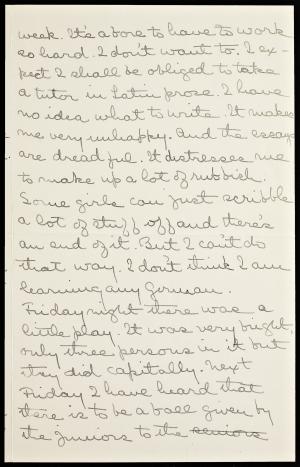 weak. It's a bore to have to work
so hard. I don't want to. I ex-
pect I shall be obliged to take
a tutor in latin prose. I have
no idea what to write. It makes
me very unhappy. And the essays
are dreadful. It distresses me
to make up a lot of rubbish.
Some girls can just scribble
a lot of stuff off and there's
an end of it. But I can't do
that way. I don't think I am
learning any German.
Friday night there was a
little play. It was very bright,
only three persons in it but
they did capitally. Next
Friday I have heard that
there is to be a ball given by
the juniors to the seniors